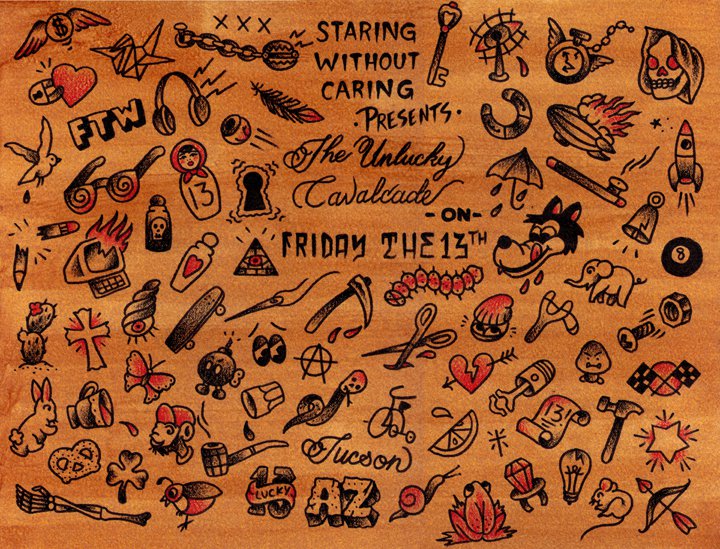 STARING
WITHOUT
CARING
·PRESENTS·
The Unlucky
Cavalcade
-ON-
FRIDAY THE 13TH
Tucson
AZ
$
XXX
FTW
13
8
13
13
LUCKY